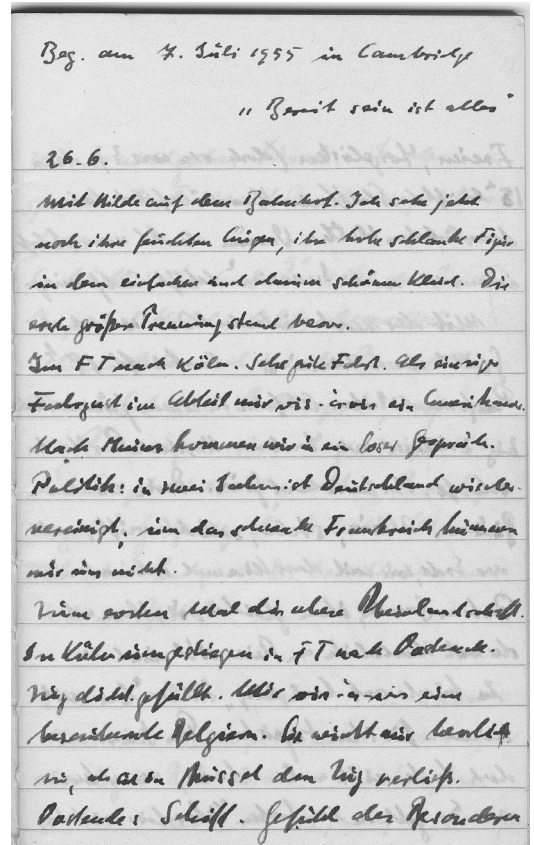 Beg. am 7. Juli 1955 in Cambridge
„Bereit sein ist alles"
26.6.
Mit Hilde auf dem Bahnhof. Ich sehe jetzt
noch ihre feuchten Augen, ihre hohe schlanke Figur
in dem einfachen und darum schönen Kleid. Die
erste größere Trennung stand bevor.
Im FT nach Köln. Sehr gute Fahrt. Als einziger
Fahrgast im Abteil mir vis-à-vis ein Amerikaner.
Nach Mainz kommen wir in ein loses Gespräch.
Politik: in zwei Jahren ist Deutschland wieder-
vereinigt, um das schwache Frankreich kümmern
wir uns nicht.
Zum ersten Mal die obere Rheinlandschaft.
In Köln umgestiegen in FT nach Ostende.
Zug dicht gefüllt. Mir vis-à-vis eine
Belgierin. Sie winkt mir
zu, als sie in Brüssel den Zug verließ.
Ostende: Schiff. Gefühl des Besonderen